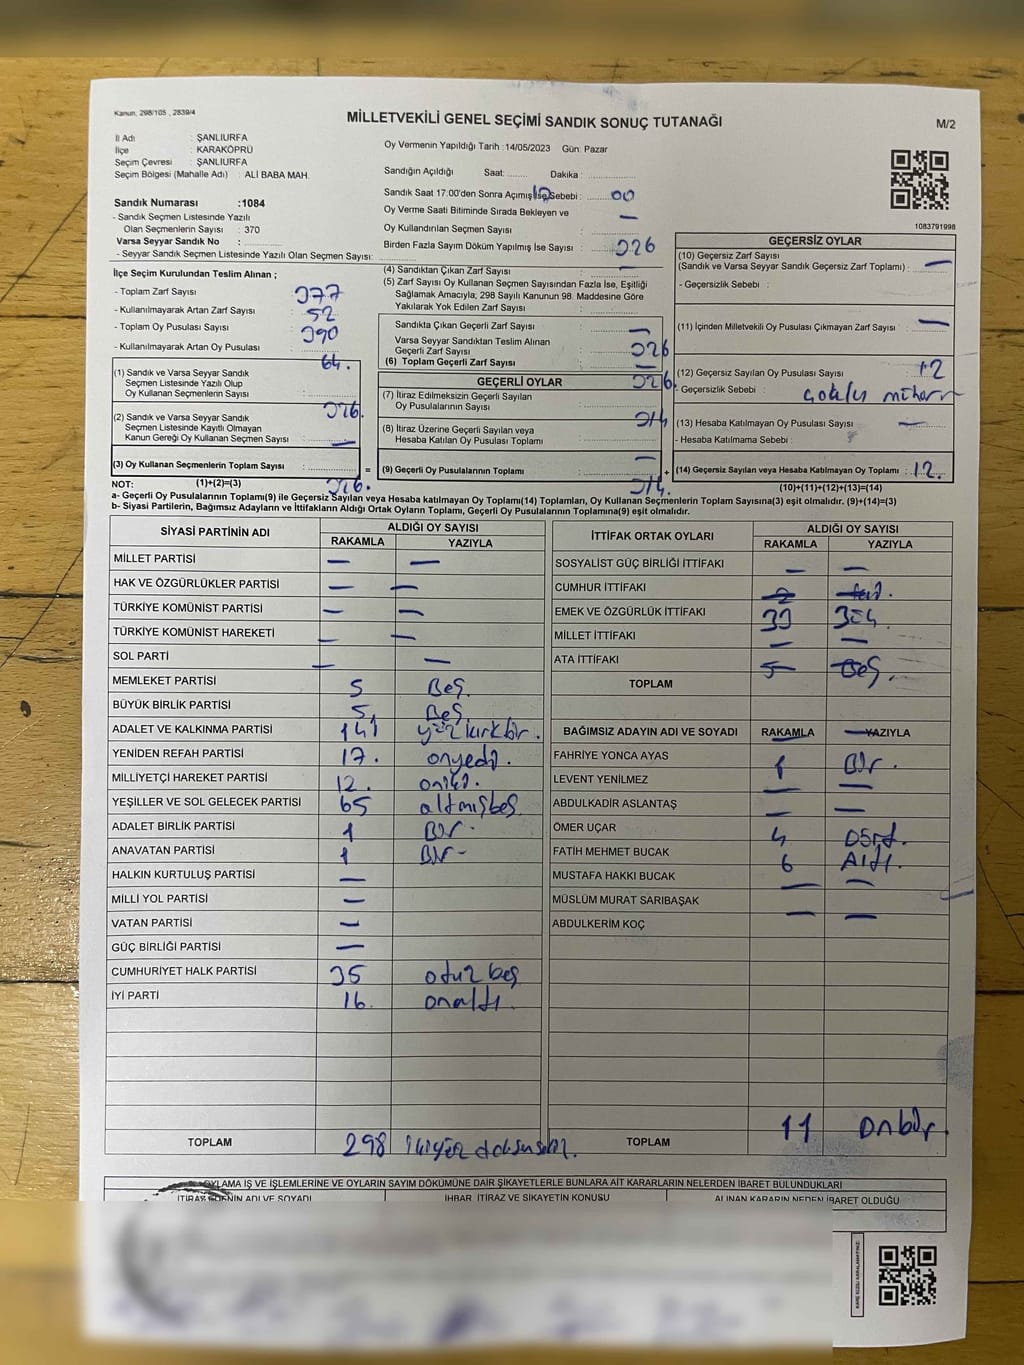 Kanun: 298/105 , 2839/4
MİLLETVEKİLİ GENEL SEÇİMİ SANDIK SONUÇ TUTANAĞI
M/2
İl Adı : ŞANLIURFA
İlçe : KARAKÖPRÜ
Seçim Çevresi : ŞANLIURFA
Seçim Bölgesi (Mahalle Adı) : ALİ BABA MAH.
Sandık Numarası :1084
- Sandık Seçmen Listesinde Yazılı
Olan Seçmenlerin Sayısı : 370
Varsa Seyyar Sandık No :
- Seyyar Sandık Seçmen Listesinde Yazılı Olan Seçmen Sayısı:
Oy Vermenin Yapıldığı Tarih :14/05/2023 Gün: Pazar
Sandığın Açıldığı Saat: Dakika :
Sandık Saat 17:00'den Sonra Açılmış İse Sebebi : 00
Oy Verme Saati Bitiminde Sırada Bekleyen ve
Oy Kullandırılan Seçmen Sayısı —
Birden Fazla Sayım Döküm Yapılmış İse Sayısı : 326
1083791998
İlçe Seçim Kurulundan Teslim Alınan ;
- Toplam Zarf Sayısı : 377
- Kullanılmayarak Artan Zarf Sayısı : 52
- Toplam Oy Pusulası Sayısı : 390
- Kullanılmayarak Artan Oy Pusulası : 64.
(1) Sandık ve Varsa Seyyar Sandık
Seçmen Listesinde Yazılı Olup
Oy Kullanan Seçmenlerin Sayısı : 326.
(2) Sandık ve Varsa Seyyar Sandık
Seçmen Listesinde Kayıtlı Olmayan
Kanun Gereği Oy Kullanan Seçmen Sayısı : —
(3) Oy Kullanan Seçmenlerin Toplam Sayısı : 326.
(1)+(2)=(3)
(4) Sandıktan Çıkan Zarf Sayısı —
(5) Zarf Sayısı Oy Kullanan Seçmen Sayısından Fazla İse, Eşitliği
Sağlamak Amacıyla; 298 Sayılı Kanunun 98. Maddesine Göre
Yakılarak Yok Edilen Zarf Sayısı :
Sandıkta Çıkan Geçerli Zarf Sayısı : —
Varsa Seyyar Sandıktan Teslim Alınan
Geçerli Zarf Sayısı : 326
(6) Toplam Geçerli Zarf Sayısı : 326.
GEÇERLİ OYLAR
(7) İtiraz Edilmeksizin Geçerli Sayılan
Oy Pusulalarının Sayısı : 314
(8) İtiraz Üzerine Geçerli Sayılan veya
Hesaba Katılan Oy Pusulası Toplamı : —
= (9) Geçerli Oy Pusulalarının Toplamı : 314. +
GEÇERSİZ OYLAR
(10) Geçersiz Zarf Sayısı
(Sandık ve Varsa Seyyar Sandık Geçersiz Zarf Toplamı) : —
- Geçersizlik Sebebi :
(11) İçinden Milletvekili Oy Pusulası Çıkmayan Zarf Sayısı : —
(12) Geçersiz Sayılan Oy Pusulası Sayısı : 12
- Geçersizlik Sebebi : çoklu
(13) Hesaba Katılmayan Oy Pusulası Sayısı : —
- Hesaba Katılmama Sebebi :
(14) Geçersiz Sayılan veya Hesaba Katılmayan Oy Toplamı : 12.
(10)+(11)+(12)+(13)=(14)
NOT:
a- Geçerli Oy Pusulalarının Toplamı(9) ile Geçersiz Sayılan veya Hesaba katılmayan Oy Toplamı(14) Toplamları, Oy Kullanan Seçmenlerin Toplam Sayısına(3) eşit olmalıdır. (9)+(14)=(3)
b- Siyasi Partilerin, Bağımsız Adayların ve İttifakların Aldığı Ortak Oyların Toplamı, Geçerli Oy Pusulalarının Toplamına(9) eşit olmalıdır.
SİYASİ PARTİNİN ADI ALDIĞI OY SAYISI
RAKAMLA YAZIYLA
MİLLET PARTİSİ — —
HAK VE ÖZGÜRLÜKLER PARTİSİ — —
TÜRKİYE KOMÜNİST PARTİSİ — —
TÜRKİYE KOMÜNİST HAREKETİ — —
SOL PARTİ — —
MEMLEKET PARTİSİ 5 Beş.
BÜYÜK BİRLİK PARTİSİ 5, Beş
ADALET VE KALKINMA PARTİSİ 141 yüzkırkbir.
YENİDEN REFAH PARTİSİ 17. onyedi.
MİLLİYETÇİ HAREKET PARTİSİ 12. oniki.
YEŞİLLER VE SOL GELECEK PARTİSİ 65 altmışbeş
ADALET BİRLİK PARTİSİ 1 Bir.
ANAVATAN PARTİSİ 1 Bir-
HALKIN KURTULUŞ PARTİSİ —
MİLLİ YOL PARTİSİ —
VATAN PARTİSİ —
GÜÇ BİRLİĞİ PARTİSİ —
CUMHURİYET HALK PARTİSİ 35 otuzbeş
İYİ PARTİ 16. onaltı.
TOPLAM 298 ikiyüz doksansekiz.
İTTİFAK ORTAK OYLARI ALDIĞI OY SAYISI
RAKAMLA YAZIYLA
SOSYALİST GÜÇ BİRLİĞİ İTTİFAKI — —
CUMHUR İTTİFAKI 2
EMEK VE ÖZGÜRLÜK İTTİFAKI
MİLLET İTTİFAKI — —
ATA İTTİFAKI 5 Beş.
TOPLAM
BAĞIMSIZ ADAYIN ADI VE SOYADI RAKAMLA YAZIYLA
FAHRİYE YONCA AYAS 1 Bir.
LEVENT YENİLMEZ — —
ABDULKADİR ASLANTAŞ — —
ÖMER UÇAR 4 Dört.
FATİH MEHMET BUCAK 6 Altı.
MUSTAFA HAKKI BUCAK — —
MÜSLÜM MURAT SARIBAŞAK — —
ABDULKERİM KOÇ
TOPLAM 11 Onbir.
OYLAMA İŞ VE İŞLEMLERİNE VE OYLARIN SAYIM DÖKÜMÜNE DAİR ŞİKAYETLERLE BUNLARA AİT KARARLARIN NELERDEN İBARET BULUNDUKLARI
İTİRAZ EDENİN ADI VE SOYADI İHBAR İTİRAZ VE ŞİKAYETİN KONUSU ALINAN KARARIN NEDEN İBARET OLDUĞU